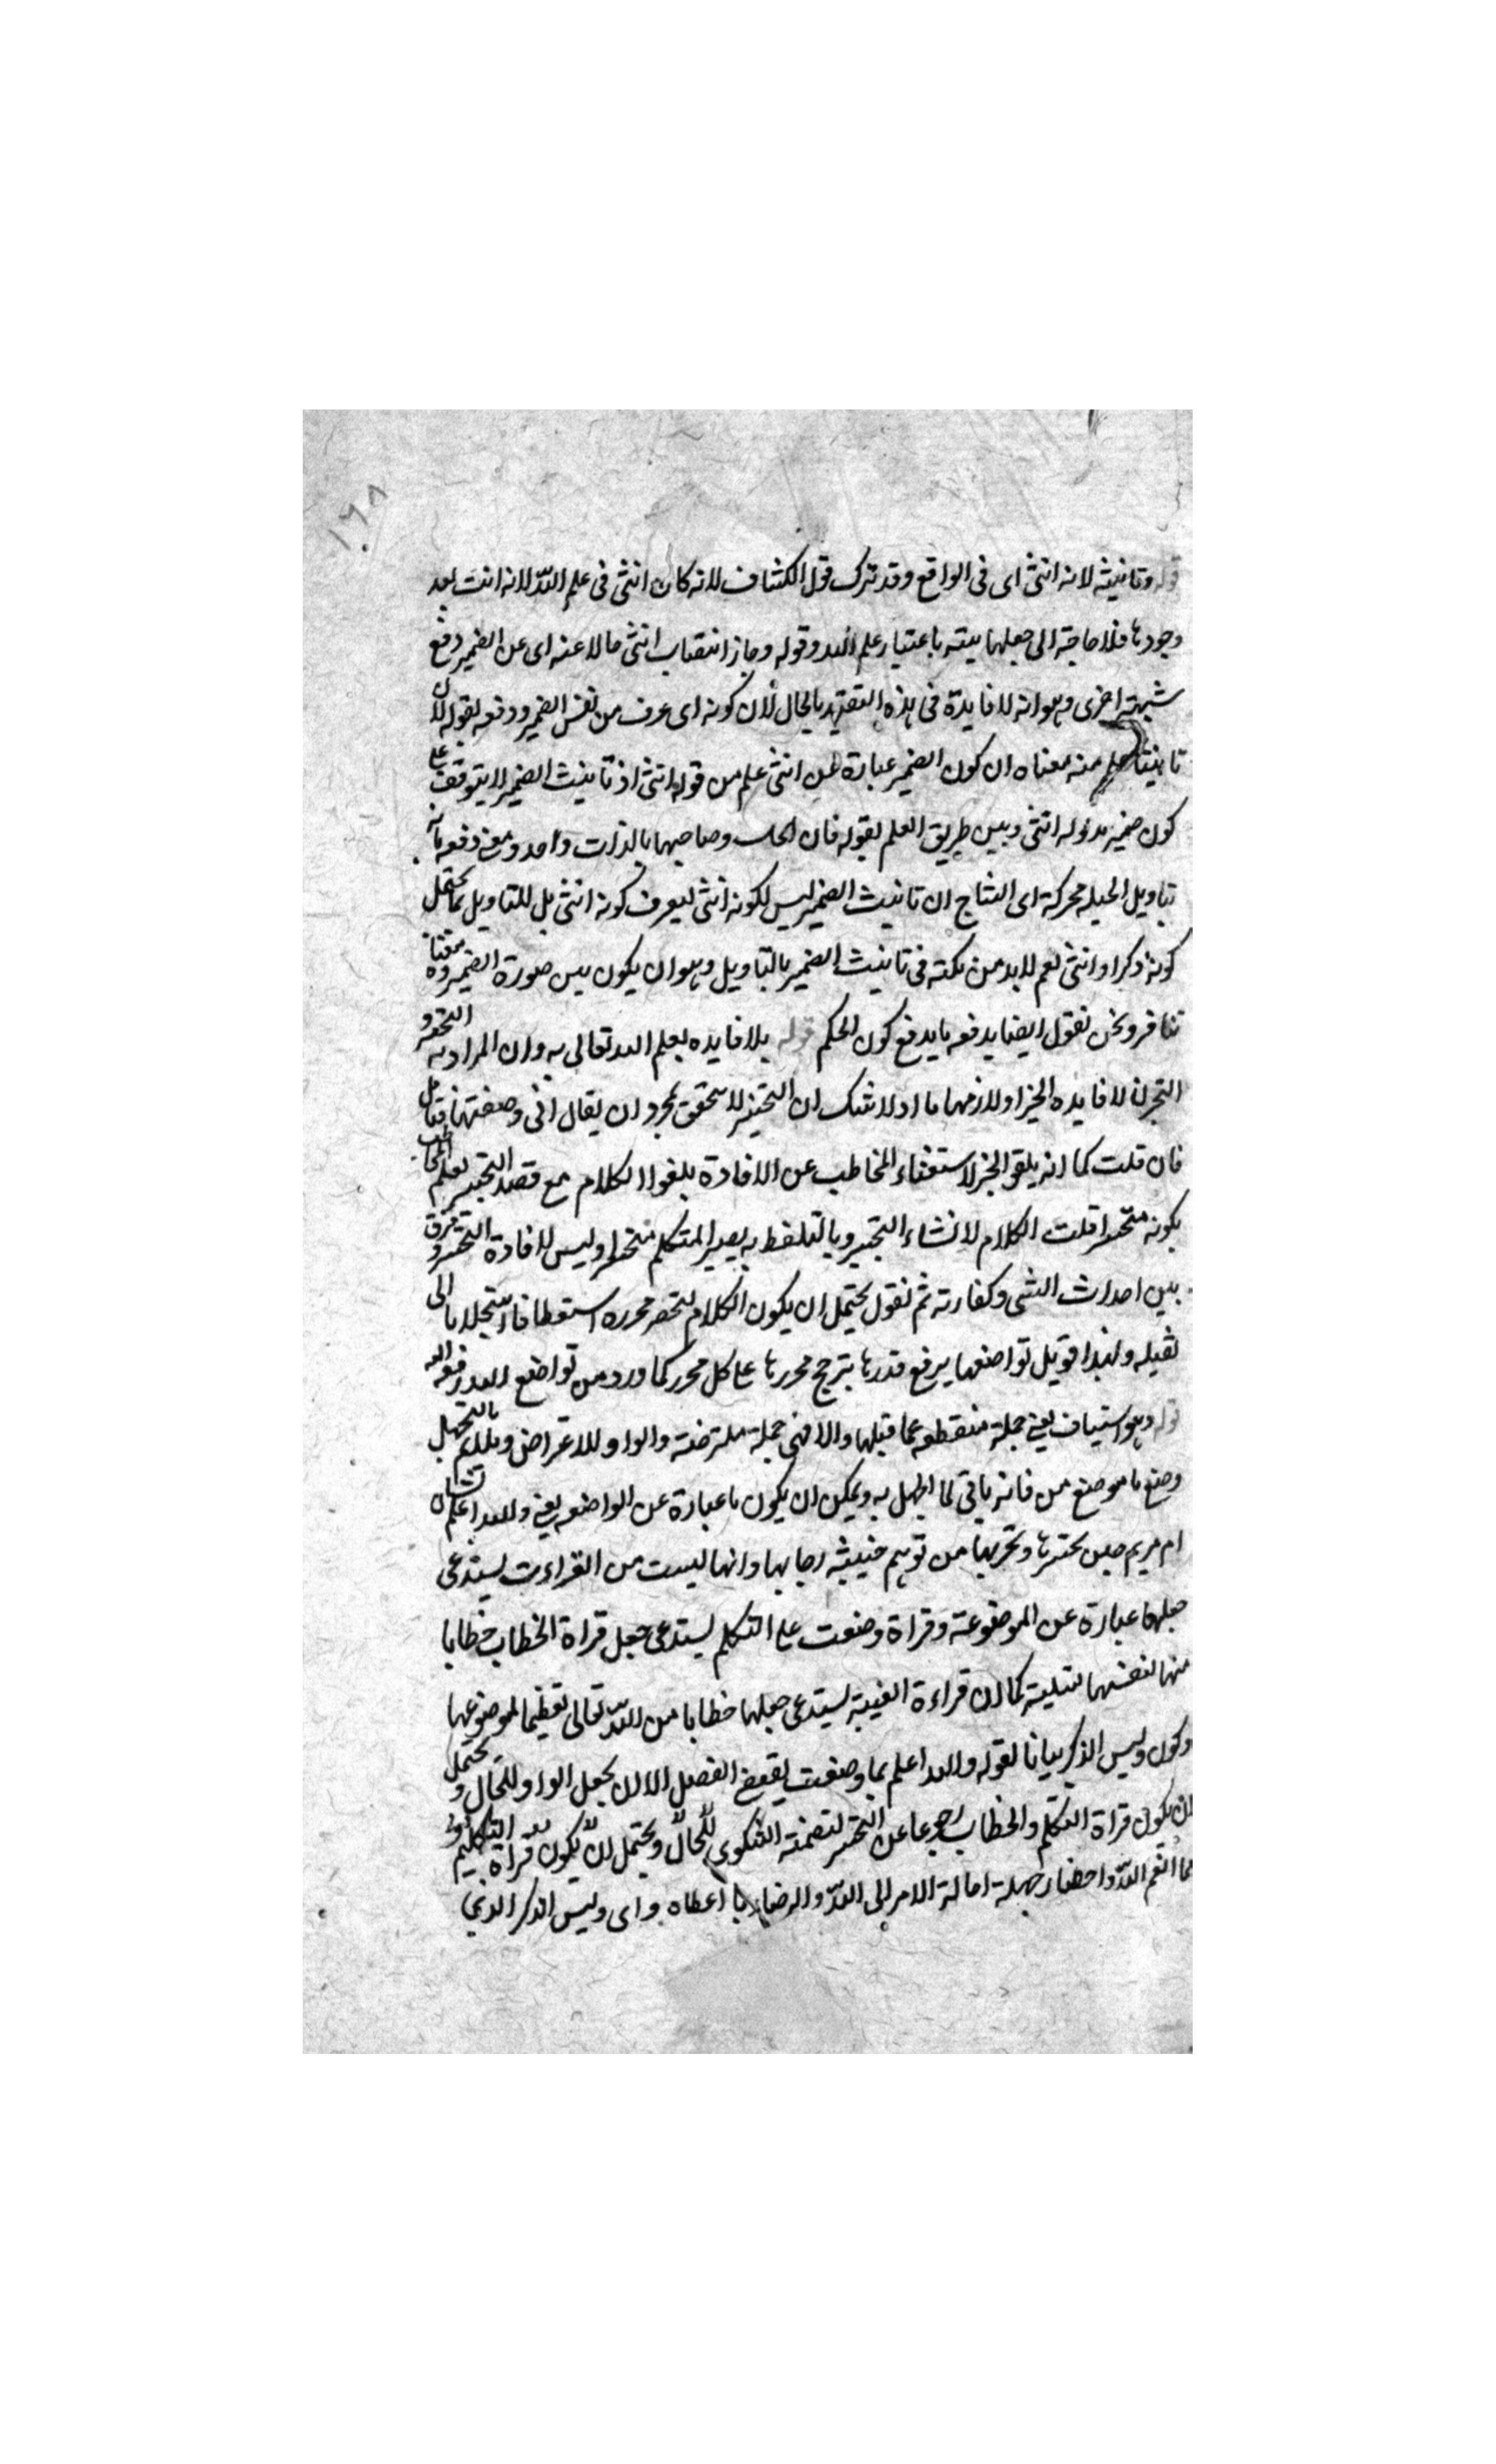 ١٦٨
قوله وتانيثه لانه انثى اى فى الواقع وقد ترك قول الكشاف لانه كان انثى فى علم الله لانه انثت بعد
وجودها فلا حاجة الى جعلها باعتبار علم الله وقوله وجاز انتصاب انثى حالا عنه اى عن الضمير دفع
شبهة اخرى وهو انه لا فايدة فى هذه التقييد بالحال لان كونه اى عرف من نفس الضمير ودفعه بقوله لان
تانيثها علم منه معناه ان كون الضمير عبارة عن انثى علم من قوله انثى اذ تانيث الضمير لا يتوقف على
كون ضمير مدلوله انثى وبين طريق العلم بقوله فان الحال وصاحبها بالذات واحد ومعنى دفعه بانه
بتاويل الحبلة محركة اى النتاج ان تانيث الضمير ليس لكونه انثى ليعرف كونه انثى بل للتاويل بما يحتمل
كونه ذكرا وانثى نعم لابد من نكتة فى تانيث الضمير بالتاويل وهو ان يكون بين صورة الضمير ومعناه
تنافر ونحن نقول ايضا يدفعه ما يدفع كون الحكم قوله بلا فايده بعلم الله تعالى به وان المراد به التحسر و
التحزن لا فايده الخبر او لازمها اذ لا شك ان التحسر لا يتحقق بمجرد ان يقال انى وضعتها فتامل
فان قلت كما انه يلغو الخبر لاستغناء المخاطب عن الافادة يلغو الكلام مع قصد التحسر لعلم المخاطب
بكونه متحسرا قلت الكلام لانشاء التحسر وبالتلفظ به يصير المتكلم متحسرا وليس لافادة التحسر وفرق
بين احداث الشى وكفارته ثم نقول يحتمل ان يكون الكلام لتحصر محرره استعطافا واستجلابا الى
لقبله ولهذا قوبل تواضعها برفع قدرها بترجيح محررها على كل محرر كما ورد من تواضع لله رفعه الله
قوله وهو استيناف يعنى جملة منقطعه عما قبلها والا فهى جملة معترضة والواو للاعتراض ويلايم بالتجهيل
وضع ما موضع من فانه ياتى لما يجهل به ويمكن ان يكون ما عبارة عن الواضعه يعنى والله اعلم بشان
ام مريم حين تحسرها وتحزنها من توهم خيبة رجائها وانها ليست من القراءت يستدعى
جعلها عبارة عن الموضوعة وقراة وضعت على التكلم يستدعى جعل قراة الخطاب خطابا
منها لنفسها لتسلية كما ان قراءة الغيبة يستدعى جعلها خطابا من الله تعالى تعظيما لموضوعها
وكون وليس الذكر بيانا لقوله والله اعلم بما وضعت يقتضى الفصل الا ان يجعل الواو للحال ويحتمل
ان يكون قراة التكلم والخطاب رجوعا عن التحسر لتضمنه الشكوى للحال ويحتمل ان يكون قراة التكلم
مما انعم الله واحضار جملة احالة الامر الى الله والرضاء بما اعطاه واى وليس الذكر الذى